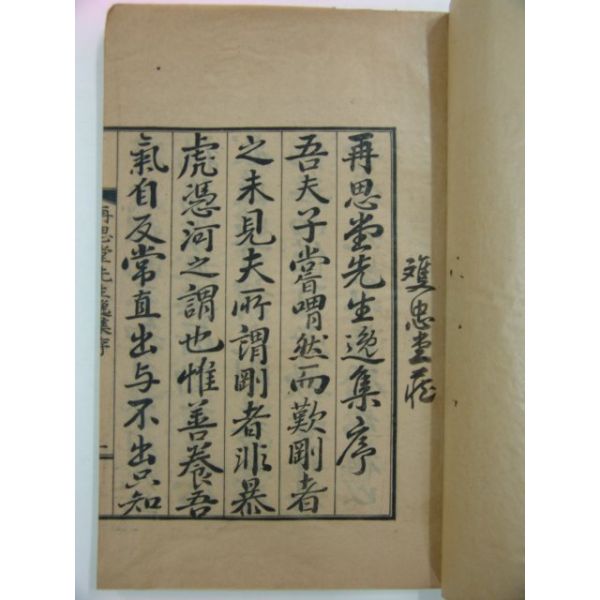 忠堂藏
再思堂先生逸集序
吾夫子嘗喟然而歎剛者
之未見夫所謂剛者非暴
虎憑河之謂也惟善養吾
氣自反常直出与不出只知
再思堂先生逸集序
一